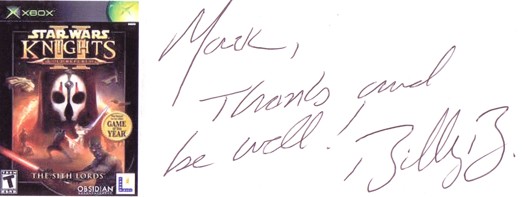 XBOX
STAR WARS
KNIGHTS
II
OF THE OLD REPUBLIC
GAME
OF THE
YEAR
THE SITH LORDS
T
OBSIDIAN
Mark,
Thanks and
be well!
Billy B.